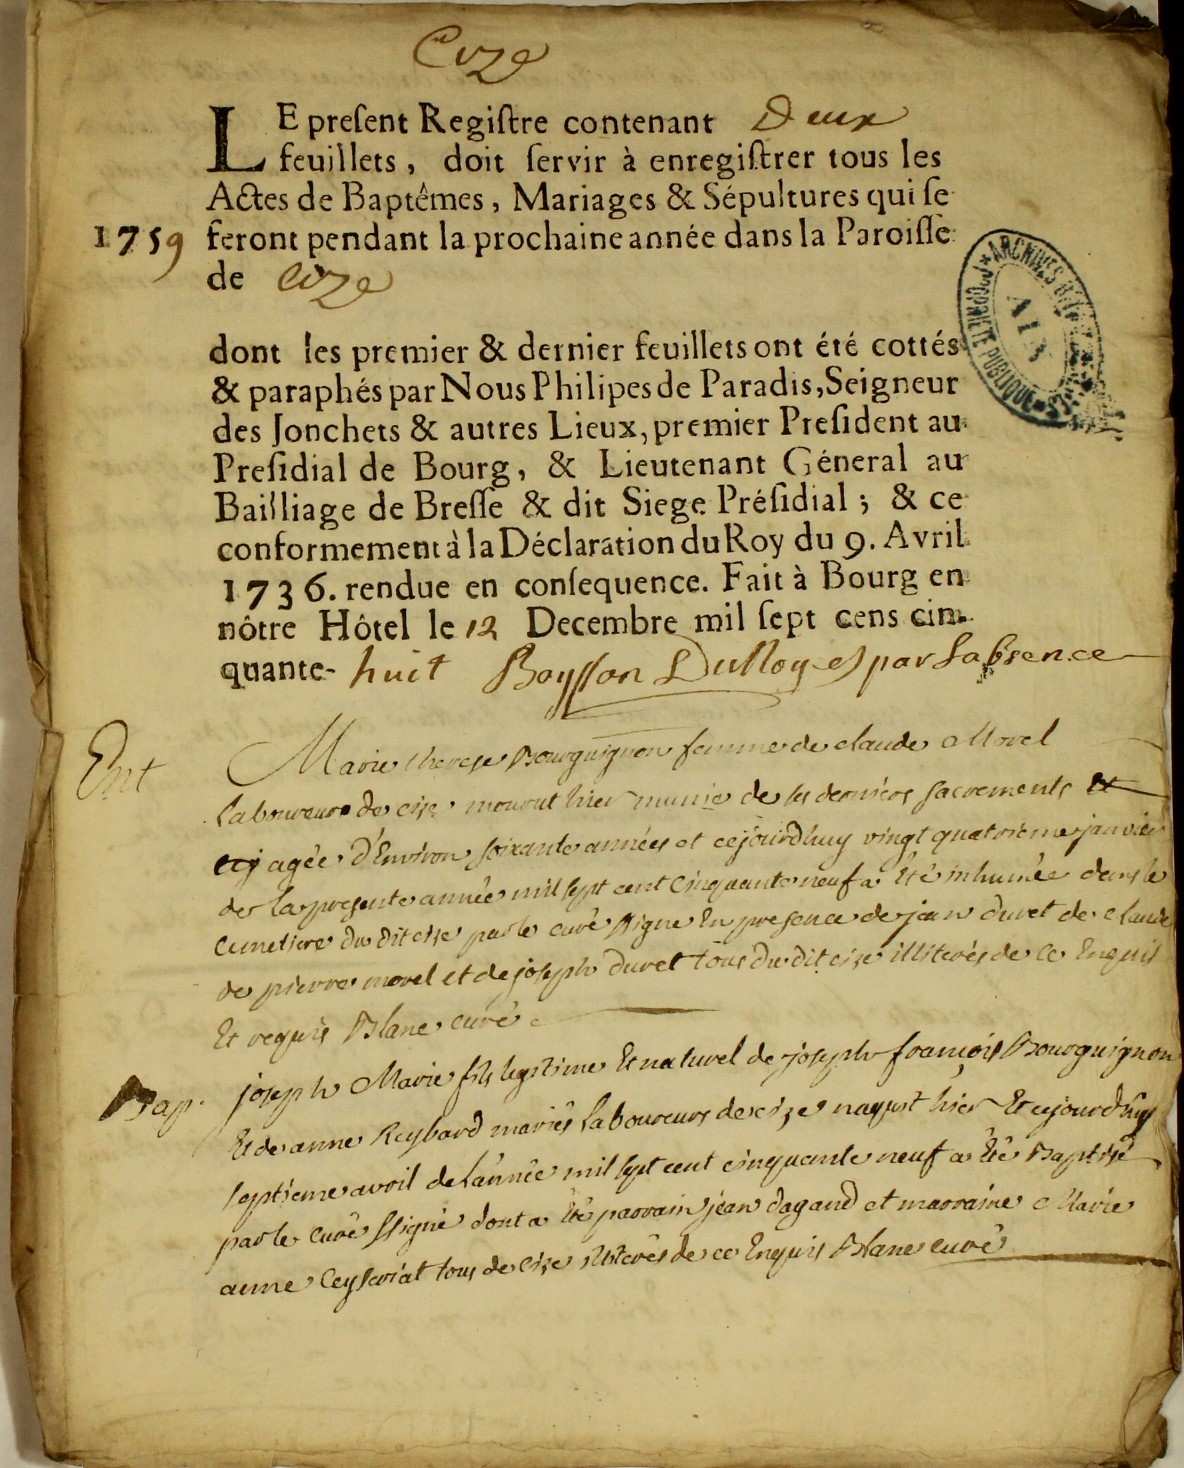 Cize
LE preſent Regiſtre contenant Deux
feuillets, doit ſervir à enregiſtrer tous les
Actes de Baptêmes, Mariages & Sépultures qui ſe
1759 feront pendant la prochaine année dans la Paroiſſe
de Cize
dont les premier & dernier feuillets ont été cottés
& paraphés par Nous Philipes de Paradis, Seigneur
des Jonchets & autres Lieux, premier Preſident au
Preſidial de Bourg, & Lieutenant Géneral au
Bailliage de Breſſe & dit Siege Préſidial; & ce
conformement à la Déclaration du Roy du 9. Avril
1736. rendue en conſequence. Fait à Bourg en
nôtre Hôtel le 12 Decembre mil ſept cens cin-
quante- huit par Labsence
ARCHIVES AIN PROPRIETE PUBLIQUE
Ent Marie therese Bourguignon femme de claude Morel
laboureur de cize mourut hier munie de ses derniers sacrements et
agée d'Environ soixante années et cejourdhuy vingt quatrieme janvier
de la presente année mil sept cent cinquante neuf a Eté inhumée dans le
cimetiere du dit cize par le curé ssigné En presence de jean duret de claude
de pierre morel et de joseph duret tous du dit cize illiterés de ce Enquis
Et requis Blanc curé
Bap. joseph Marie fils legitime Et naturel de joseph françois Bourguignon
Et de anne Reybard mariés laboureurs de cize naquit hier Et cejourdhuy
septieme avril de l'année mil sept cent cinquante neuf a Eté Baptisé
par le curé ssigné dont a Eté parrain jean dagand et marraine Marie
anne Ceyseriat tous de cize illiterés de ce Enquis Blanc curé